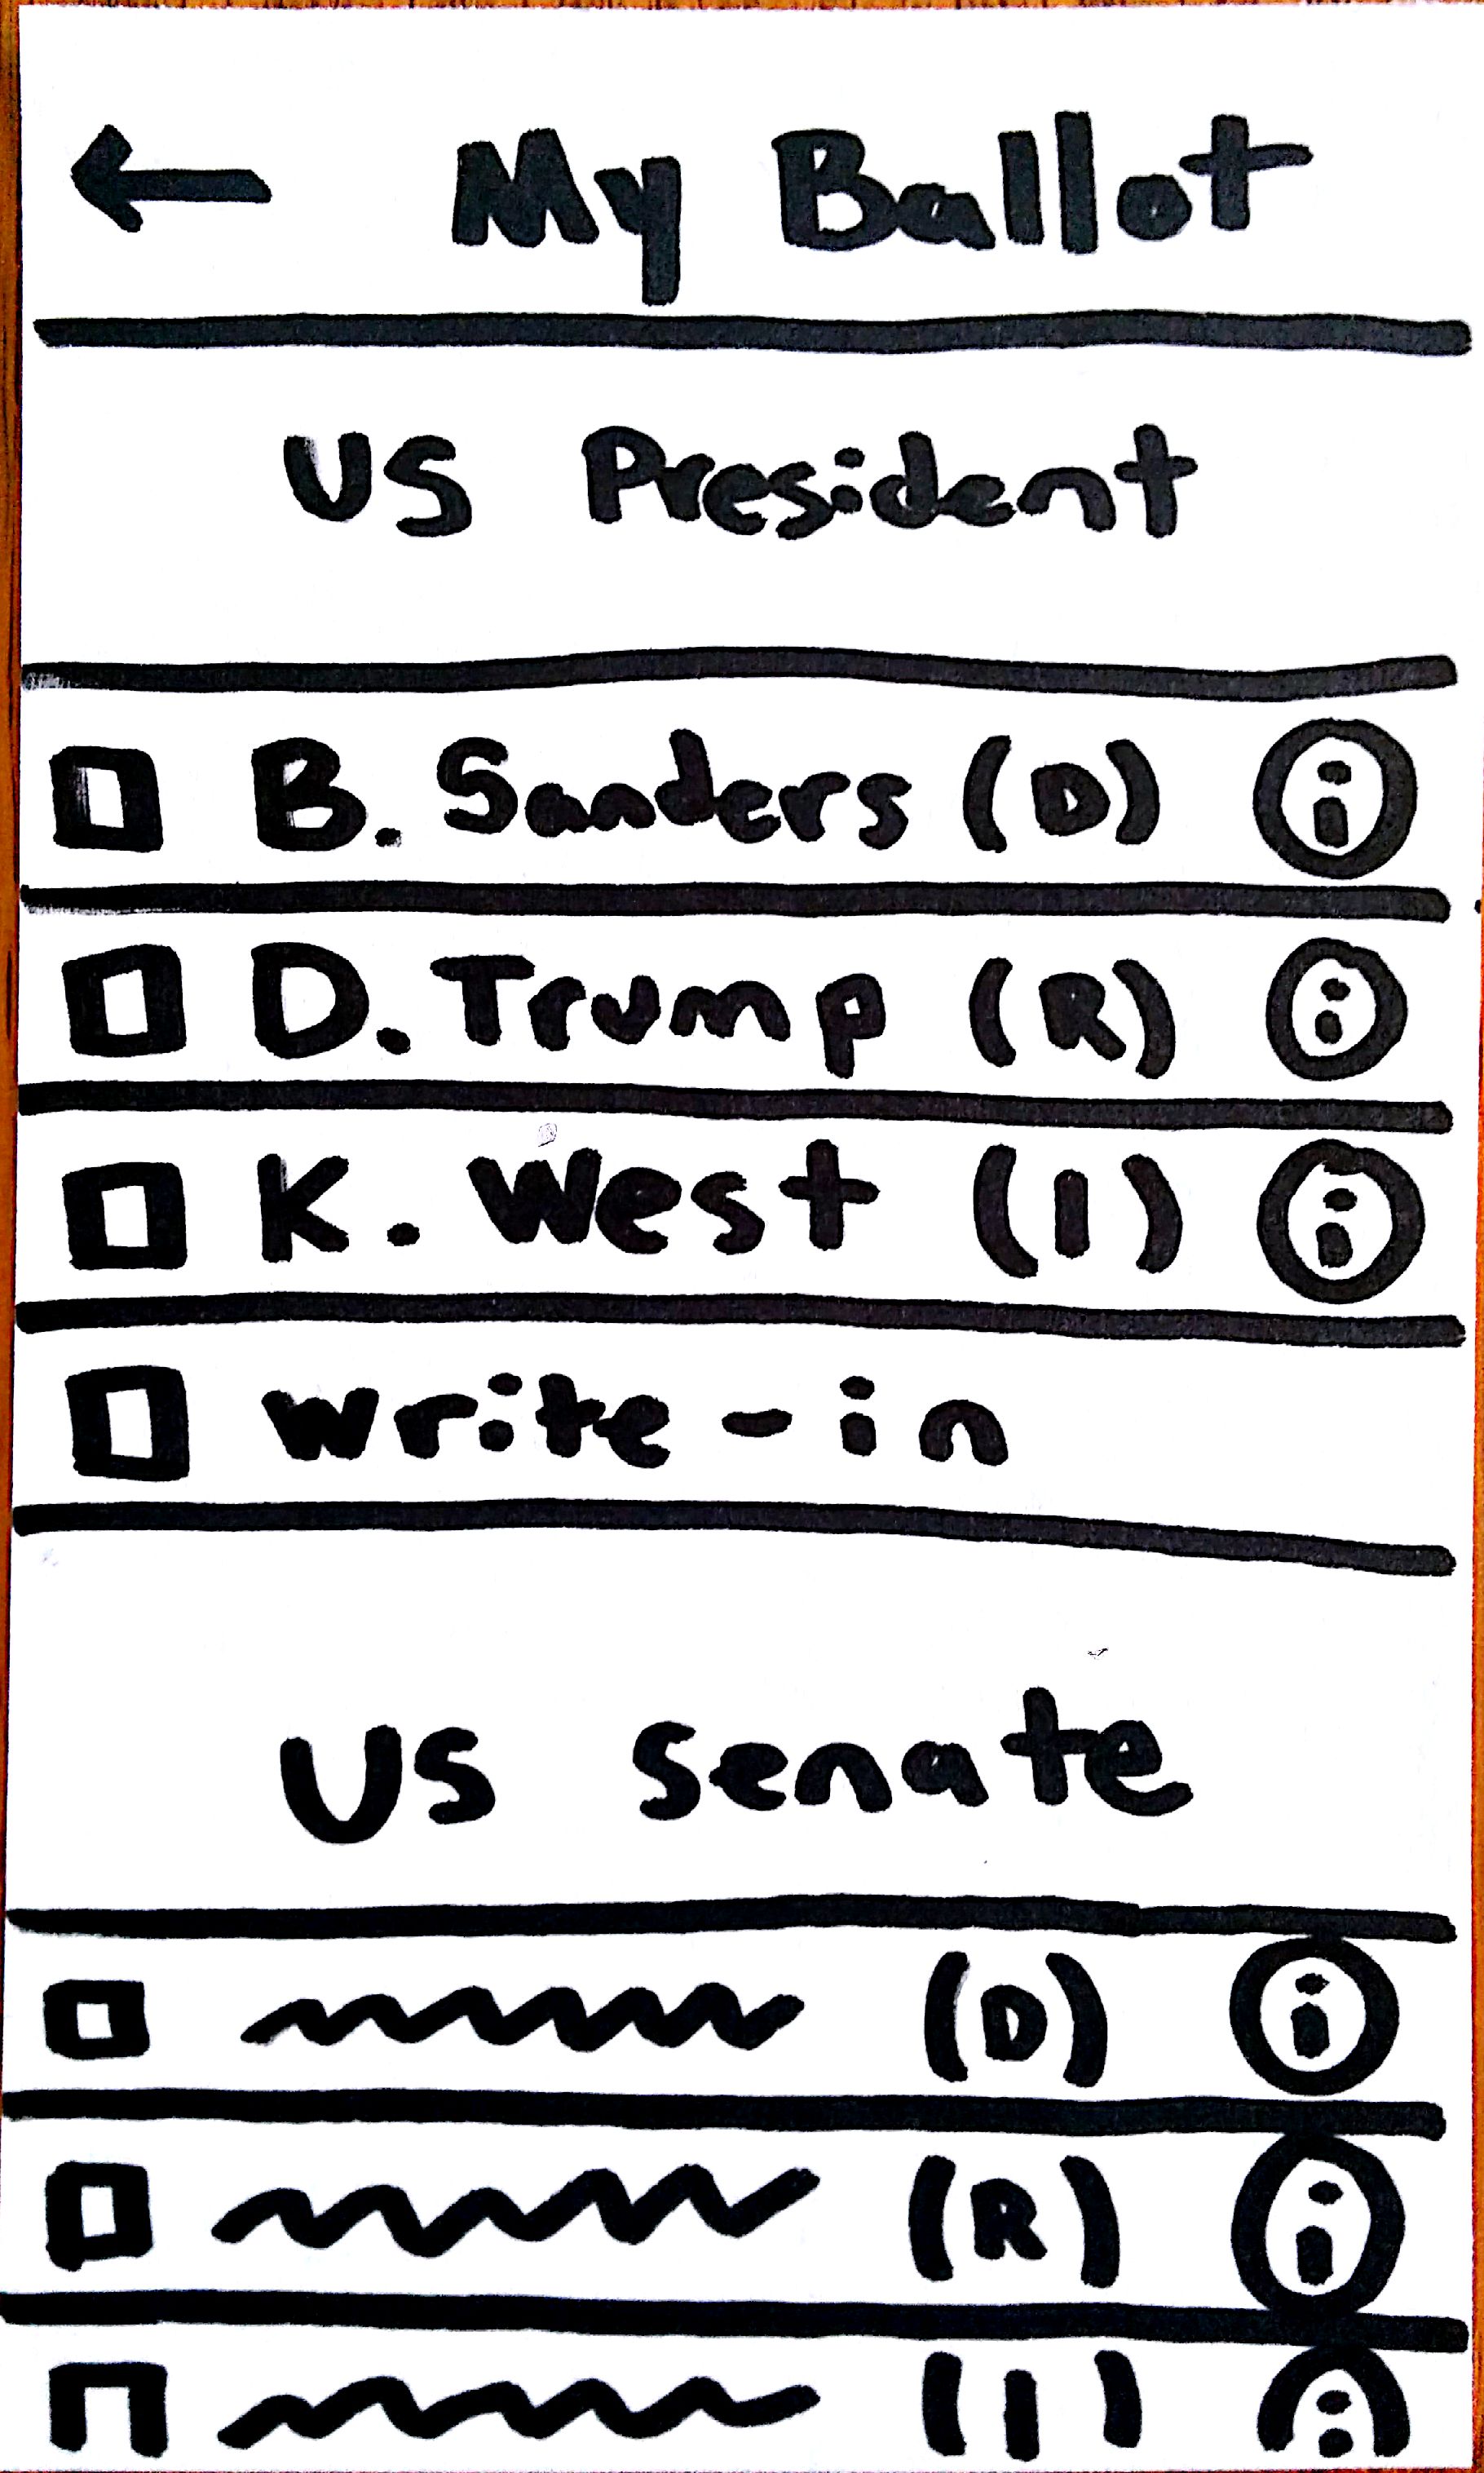 ← My Ballot
US President
B. Sanders (D) i
D. Trump (R) i
K. West (I) i
write-in
US Senate
(D) i
(R) i
(I) i